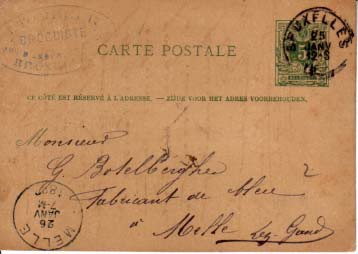 DROGUISTE
CARTE POSTALE
BRUXELLES
25
JANV
5
CE CÔTÉ EST RÉSERVÉ À L'ADRESSE. — ZIJDE VOOR HET ADRES VOORBEHOUDEN.
Monsieur
G. Botelberghe
2
Fabricant de Bleu
à Melle Lez-Gand
MELLE
26
JANV
7-M